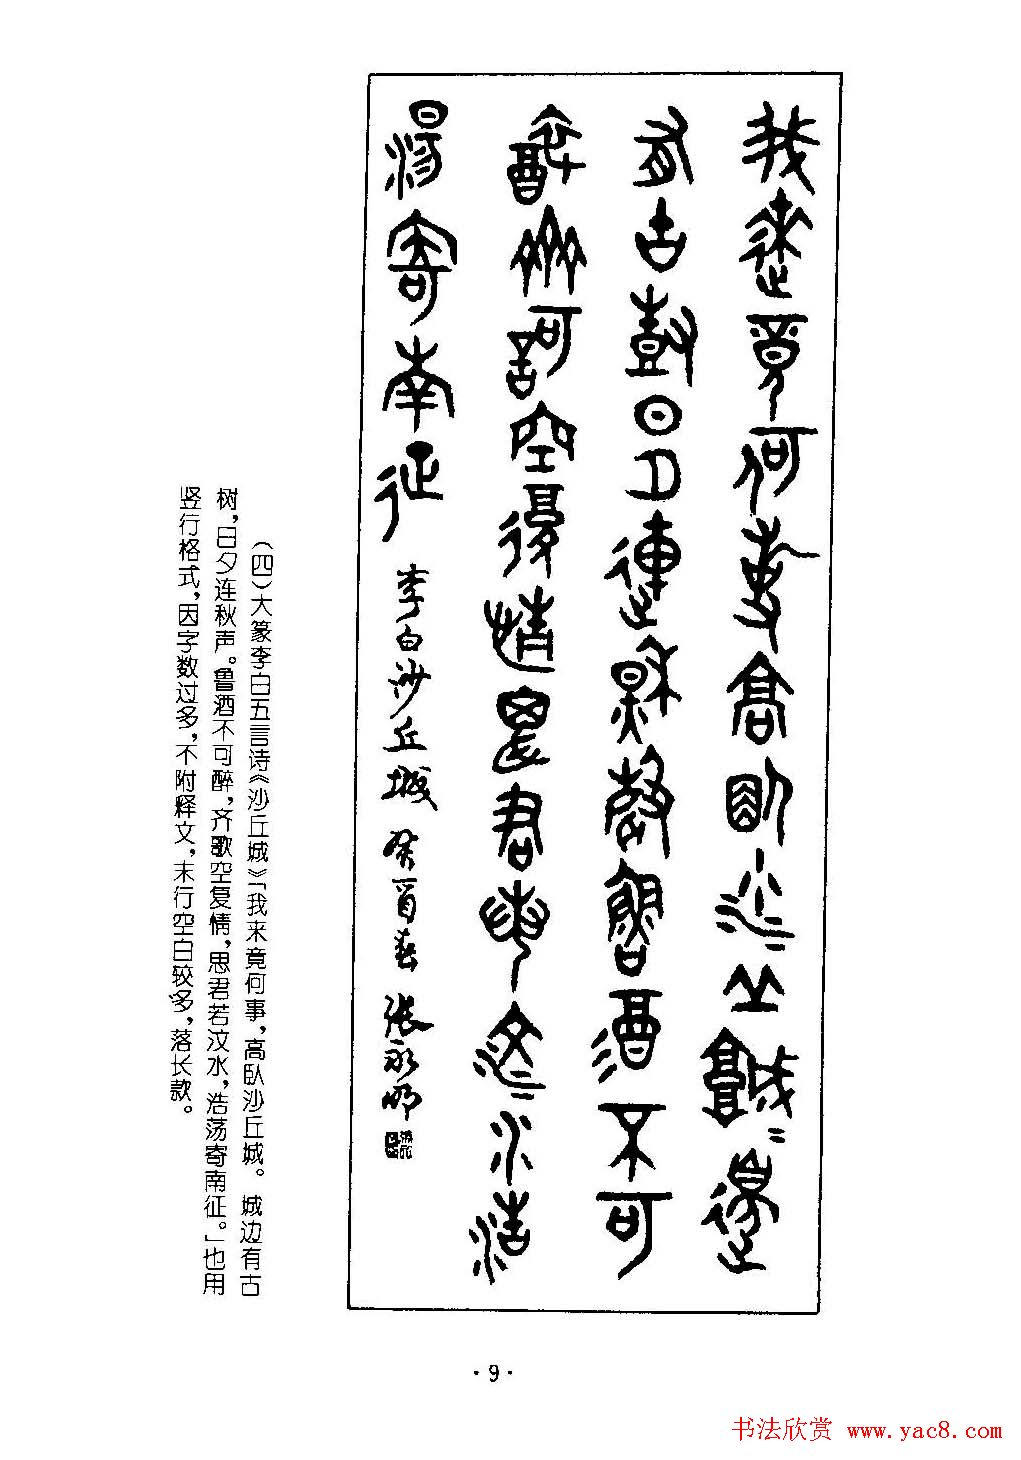 我來竟何事高臥沙丘城〻邊
有古樹日夕連秋聲魯酒不可
醉齊歌空復情思君若汶水浩
蕩寄南征 李白沙丘城 癸酉春 張永明
(四)大篆李白五言诗《沙丘城》「我来竟何事,高卧沙丘城。城边有古
树,日夕连秋声。鲁酒不可醉,齐歌空复情,思君若汶水,浩荡寄南征。」也用
竖行格式,因字数过多,不附释文,末行空白较多,落长款。
·9·
书法欣赏 www.yac8.com